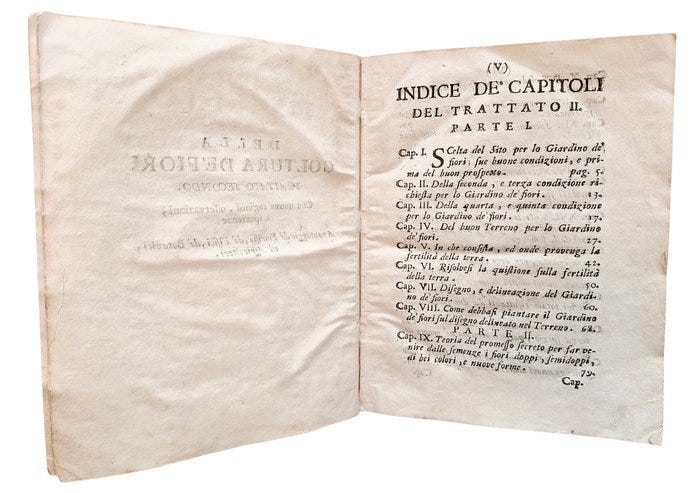 (V)
INDICE DE' CAPITOLI
DEL TRATTATO II.
PARTE I.
Cap. I. SCelta del Sito per lo Giardino de'
fiori, ſue buone condizioni, e pri-
ma del buon proſpetto. pag. 5.
Cap. II. Della ſeconda, e terza condizione ri-
chieſta per lo Giardino de' fiori. 13.
Cap. III. Della quarta, e quinta condizione
per lo Giardino de' fiori. 17.
Cap. IV. Del buon Terreno per lo Giardino
de' fiori. 27.
Cap. V. In che conſiſta, ed onde provenga la
fertilità della terra. 42.
Cap. VI. Riſolveſi la quiſtione ſulla fertilità
della terra. 50.
Cap. VII. Diſegno, e delineazione del Giardi-
no de' fiori. 60.
Cap. VIII. Come debbaſi piantare il Giardino
de' fiori ſul diſegno delineato nel Terreno. 68.
PARTE II.
Cap. IX. Teoria del promeſſo ſecreto per far ve-
nire dalle ſemenze i fiori doppi, ſemidoppi,
di bei colori, e nuove forme. 79.
Cap.